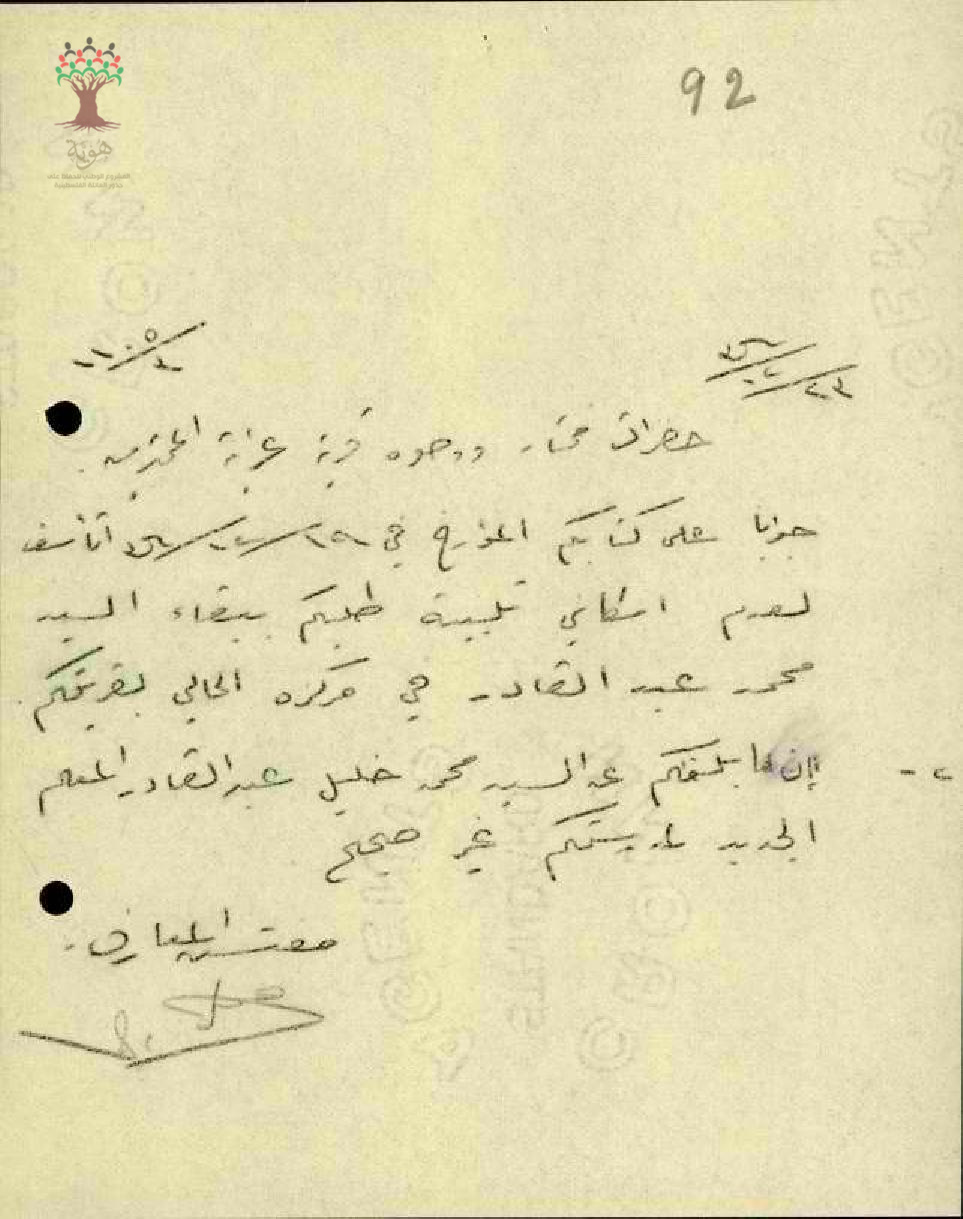 92
هوية
المشروع الوطني للحفاظ على
جذور العائلة الفلسطينية
حضرات مختار ووجوه قرية عرابة المحترمين.
جوابا على كتابكم المؤرخ في أتأسف
لعدم امكاني تلبية طلبكم ببقاء السيد
محمد عبد القادر في مركزه الحالي بقريتكم.
٢- إن ما بلغكم عن السيد محمد خليل عبد القادر المعلم
الجديد لمدرستكم غير صحيح
مفتش المعارف.